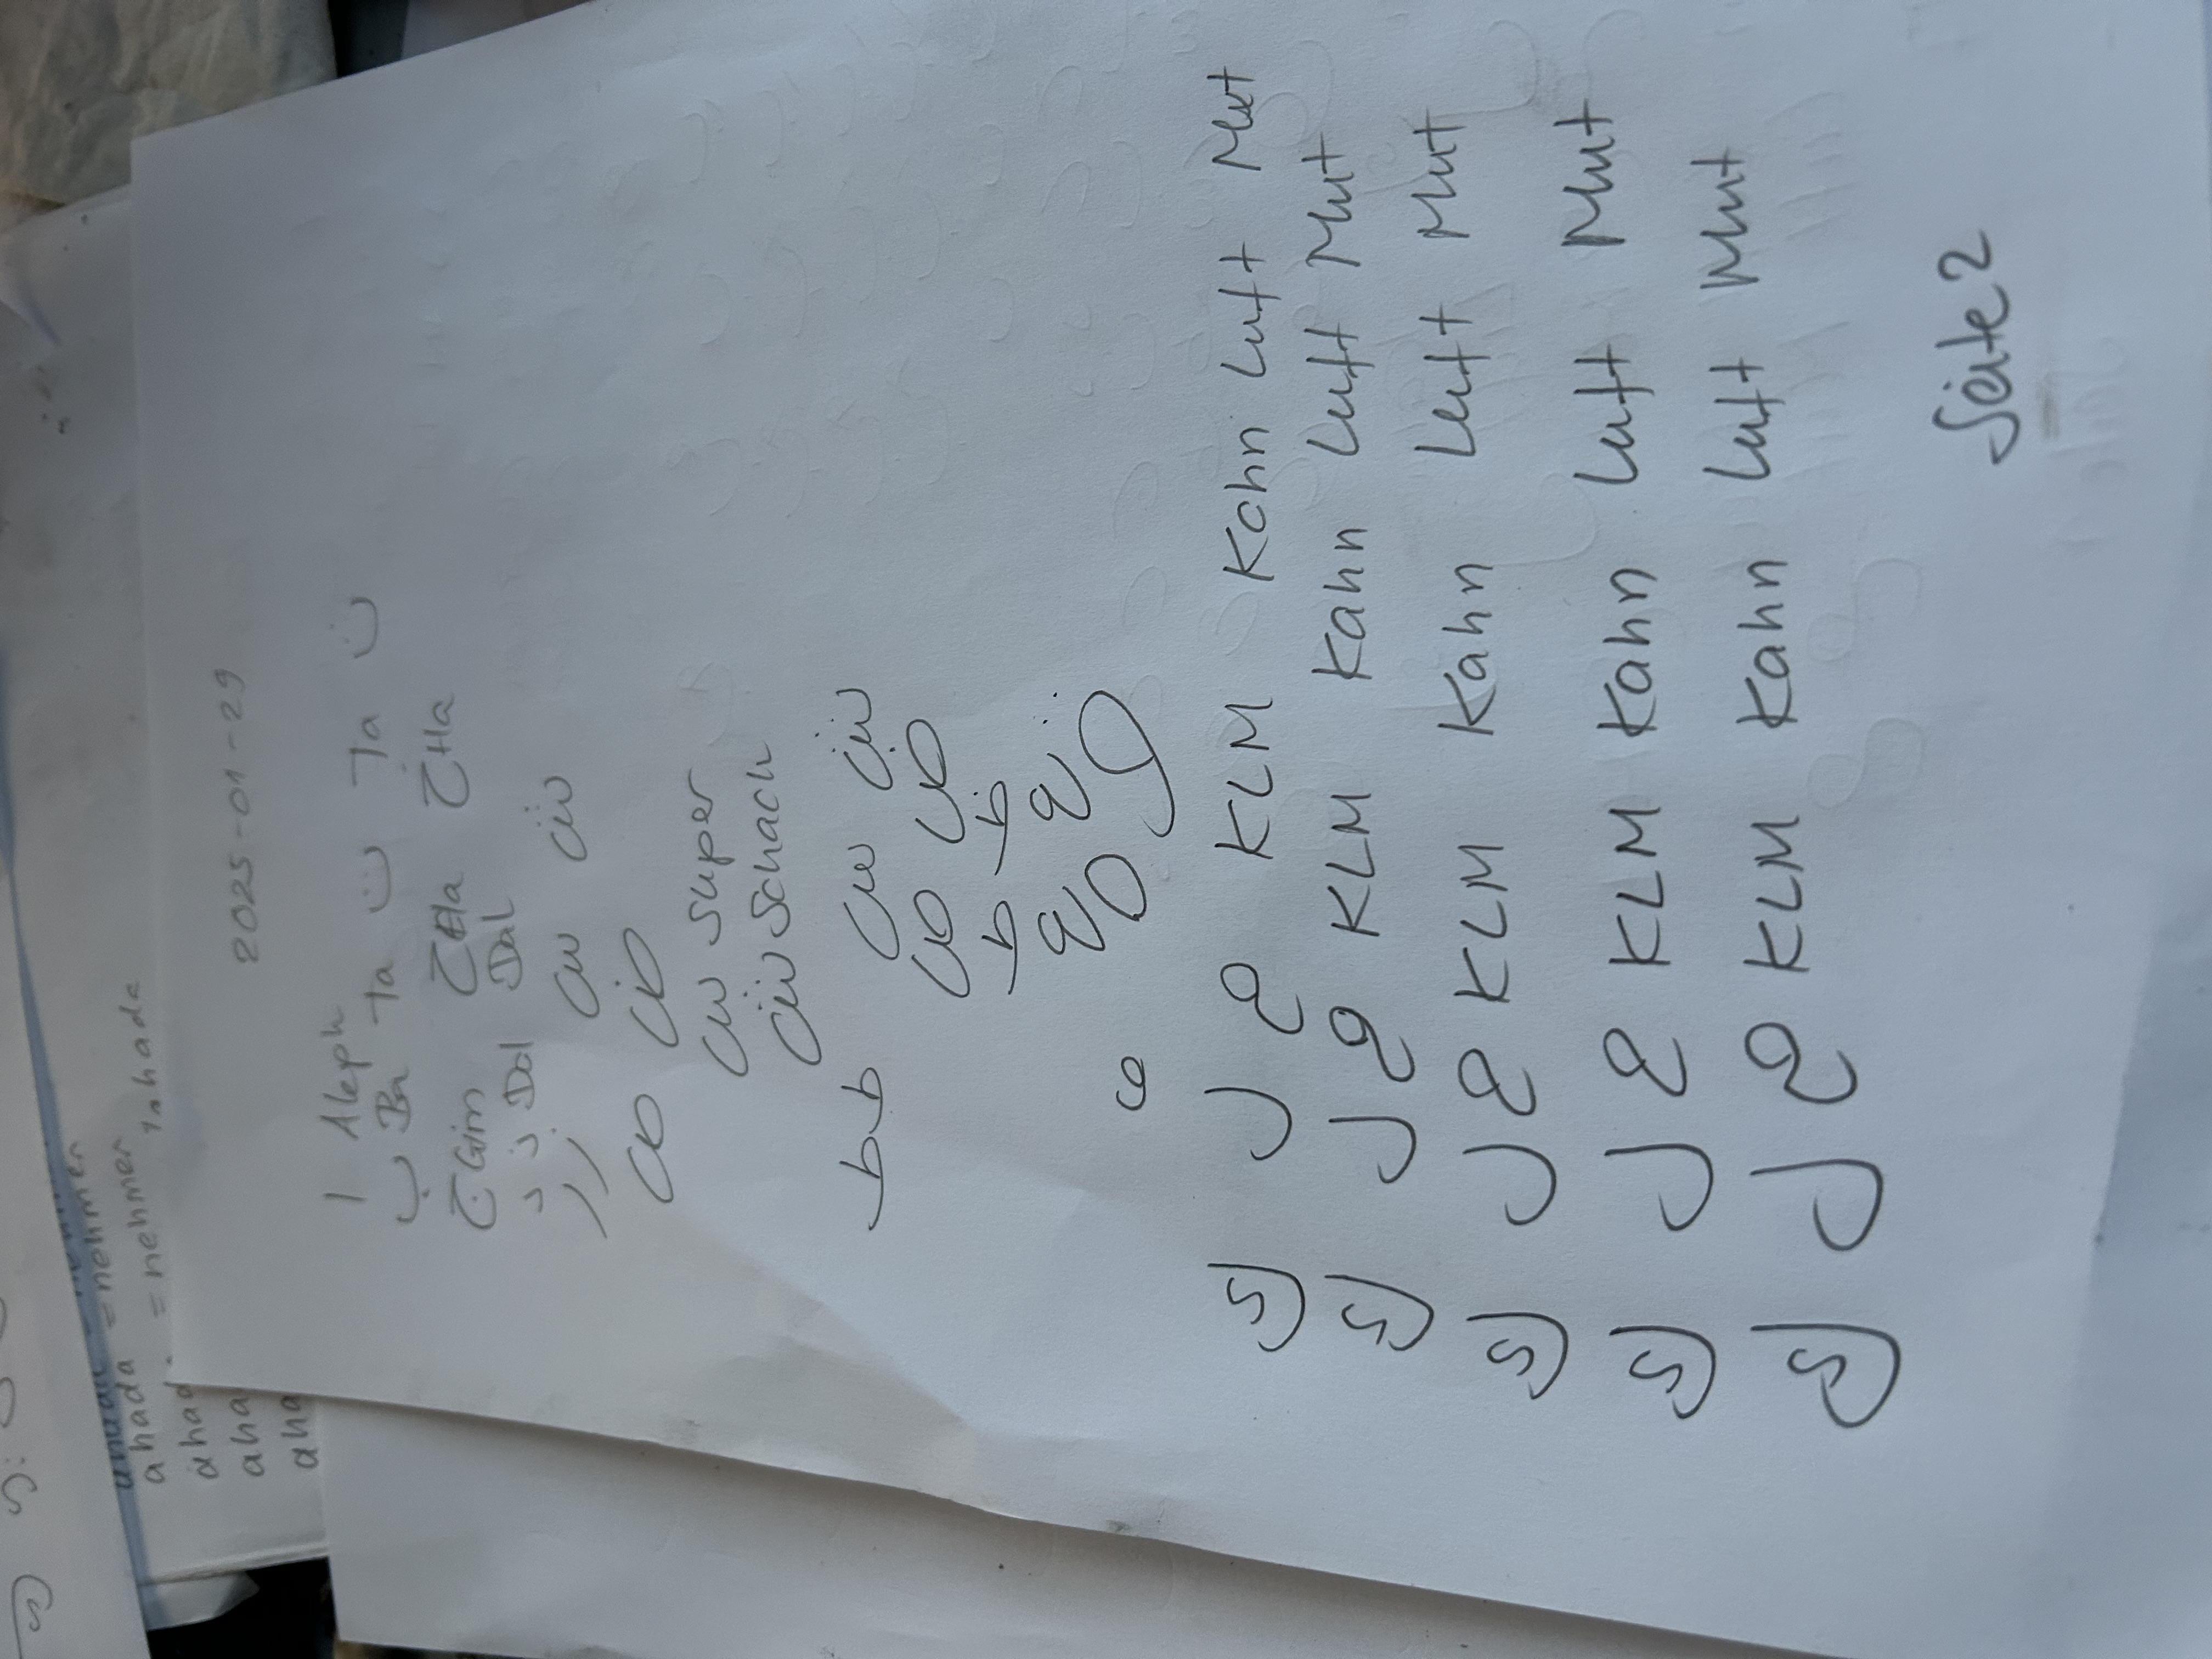 2025-01-29
ا Aleph
ب Ba ta ت Ta ت
ج Gim ح Ha خ Ha
د ذ Dal Dal
ر ز س ش
ص ض
س super
ش Schach
ط ط س ش
ص ض
ط ط
ع غ
ه و
ك ل م KLM Kahn Luft Mut
ك ل م KLM Kahn Luft Mut
ك ل م KLM Kahn Luft Mut
ك ل م KLM Kahn Luft Mut
ك ل م KLM Kahn Luft Mut
Seite 2
ahada = nehmen
ahad. = nehmen